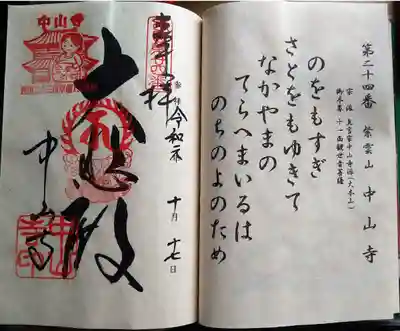 第二十四番 紫雲山 中山寺
宗派 真言宗中山寺派(大本山)
御本尊 十一面観世音菩薩
のをもすぎ
さとをもゆきて
なかやまの
てらへまいるは
のちのよのため
奉拝
参拝 令和元年 十月 十七日
大悲殿
中山寺
中山寺